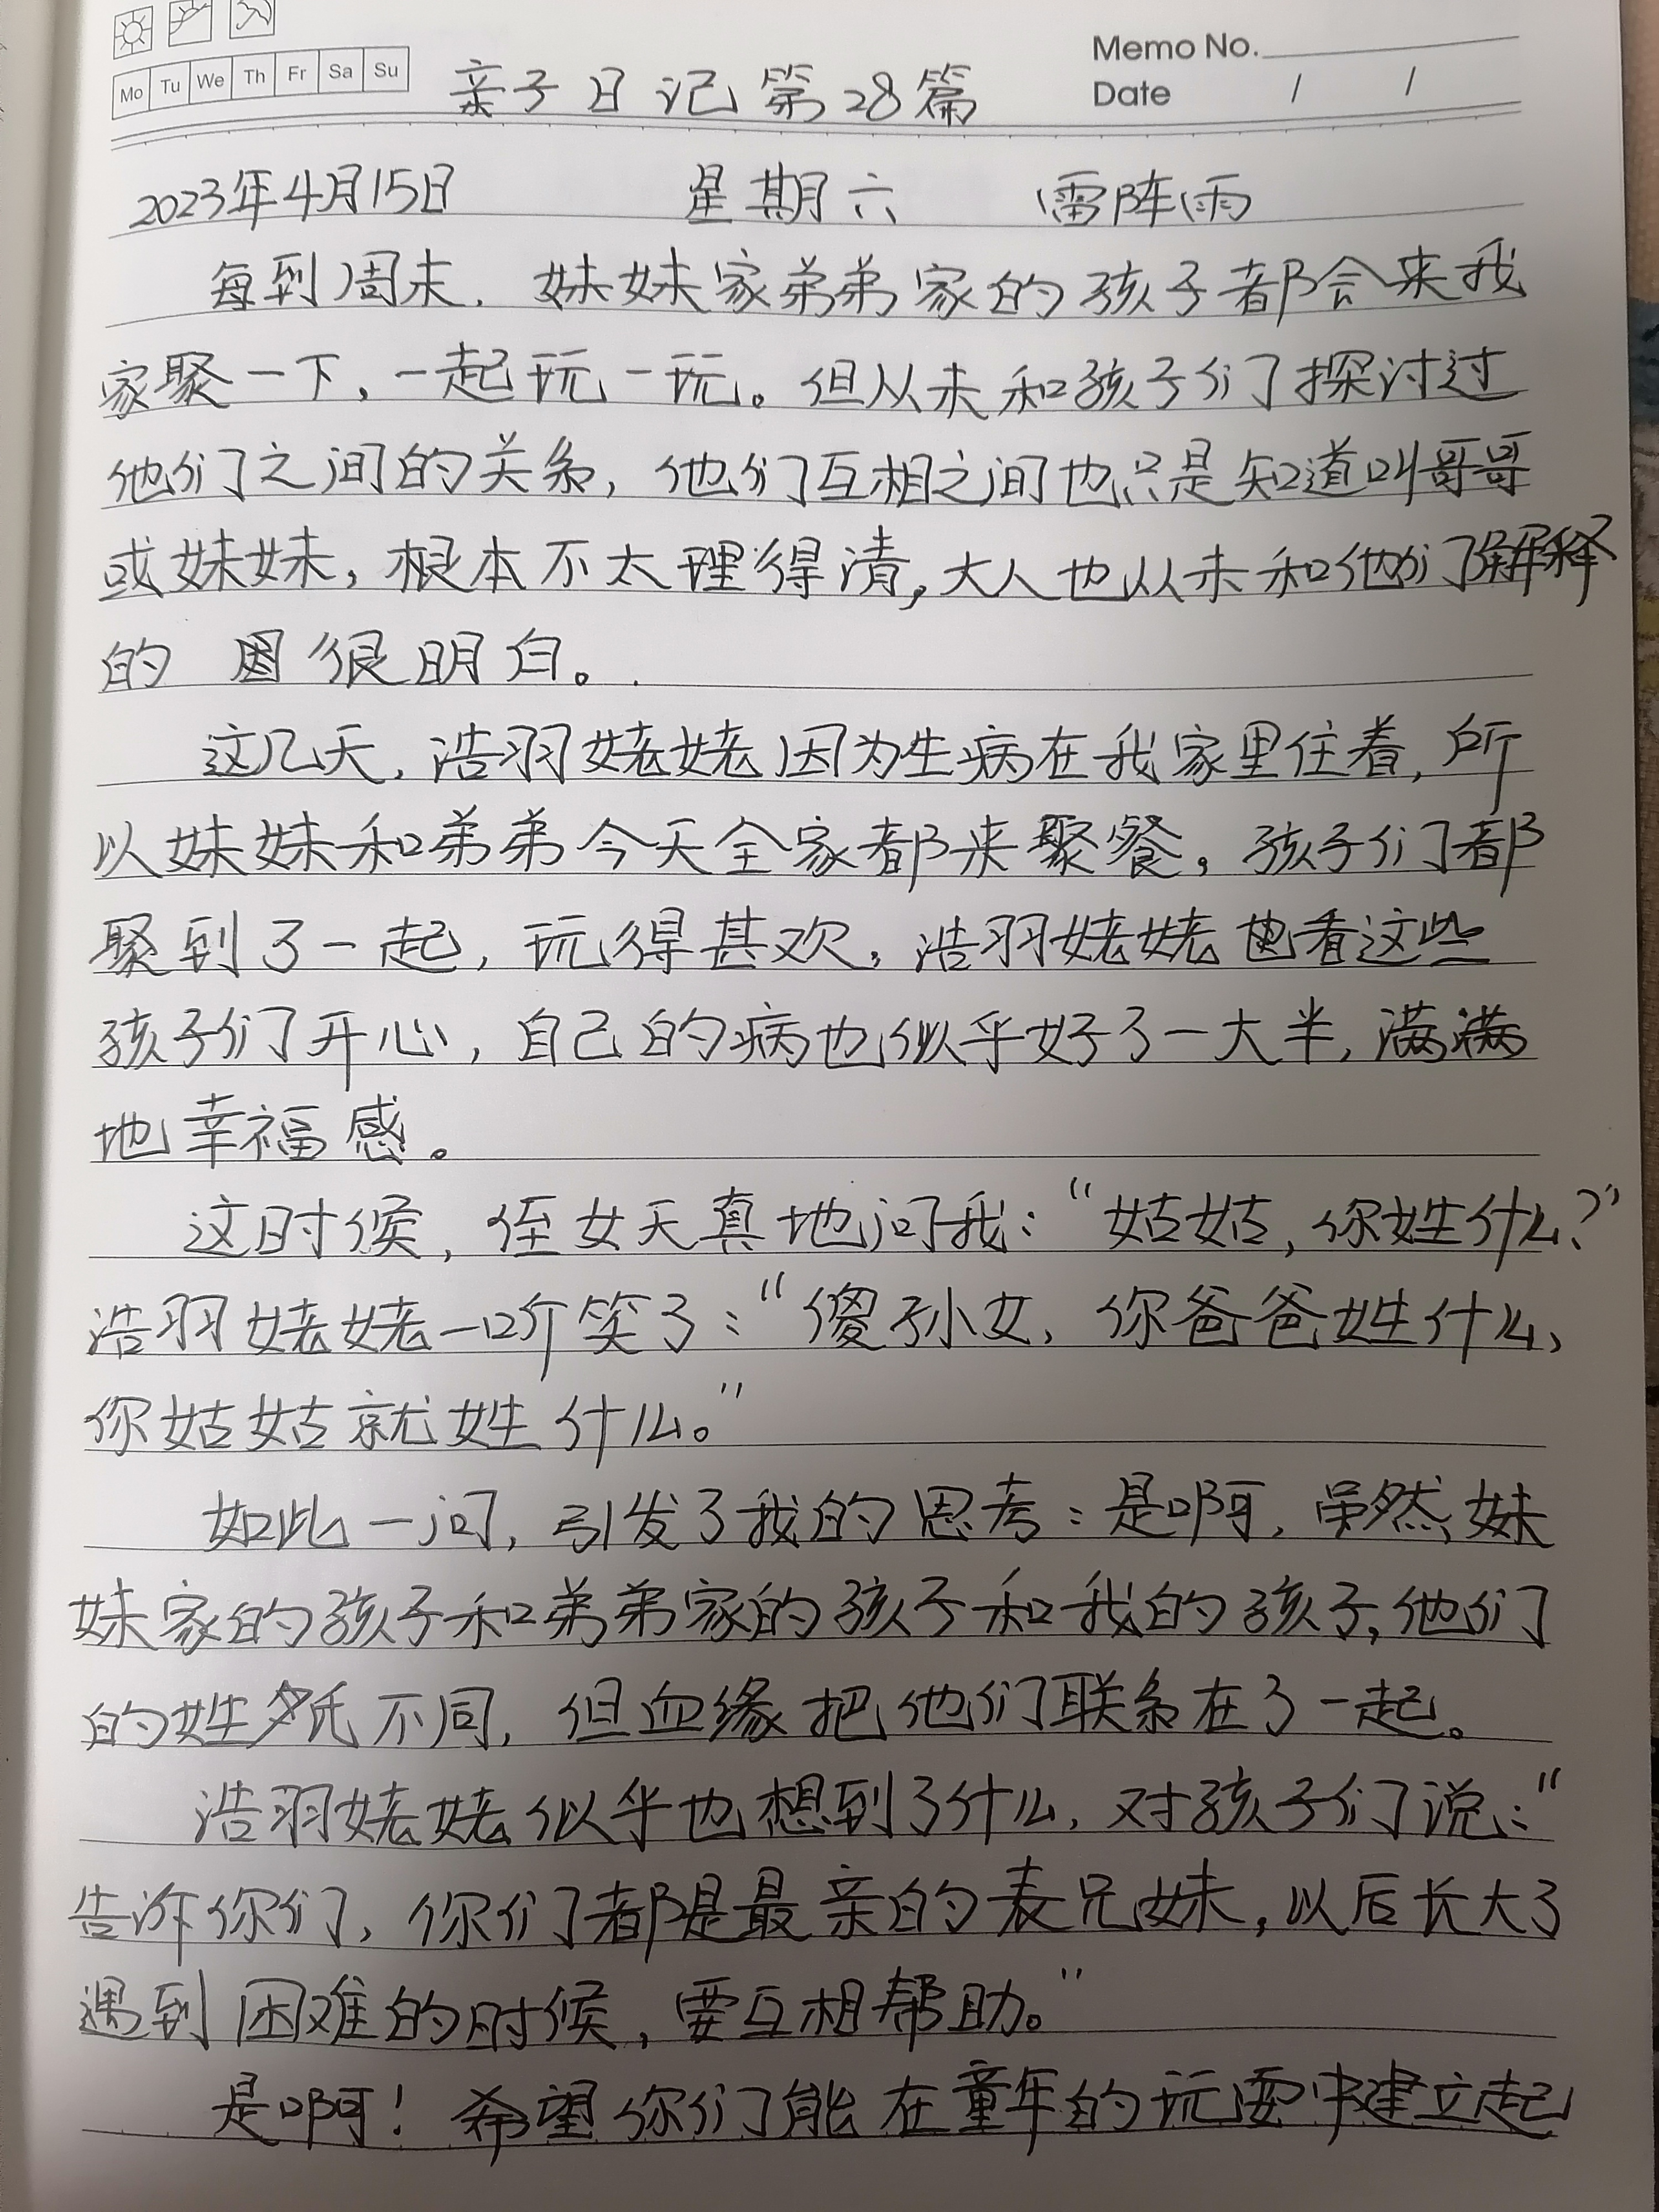 Mo Tu We Th Fr Sa Su
Memo No.
Date / /
亲子日记第28篇
2023年4月15日 星期六 雷阵雨
每到周末，妹妹家弟弟家的孩子都会来我
家聚一下，一起玩一玩。但从未和孩子们探讨过
他们之间的关系，他们互相之间也只是知道叫哥哥
或妹妹，根本不太理得清，大人也从未和他们解释
的 很明白。
这几天，浩羽姥姥因为生病在我家里住着，所
以妹妹和弟弟今天全家都来聚餐。孩子们都
聚到了一起，玩得甚欢，浩羽姥姥 看这些
孩子们开心，自己的病也似乎好了一大半，满满
地幸福感。
这时候，侄女天真地问我：“姑姑，你姓什么？”
浩羽姥姥一听笑了：“傻孙女，你爸爸姓什么，
你姑姑就姓什么。”
如此一问，引发了我的思考：是啊，虽然妹
妹家的孩子和弟弟家的孩子和我的孩子，他们
的姓氏不同，但血缘把他们联系在了一起。
浩羽姥姥似乎也想到了什么，对孩子们说：“
告诉你们，你们都是最亲的表兄妹，以后长大了
遇到困难的时候，要互相帮助。”
是啊！希望你们能在童年的玩耍中建立起